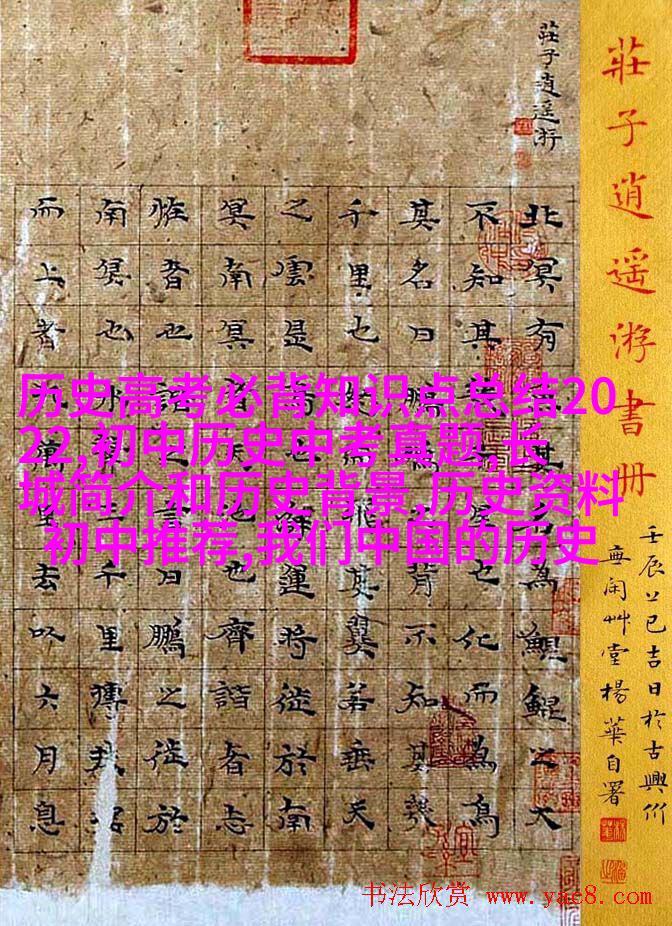 莊子逍遥游書册
壬辰上巳吉日於古興
草堂楊華自署
莊子逍遥游
北冥有其名為鯤鯤之大
不知其也化而為鳥
其名曰鵬背不知其幾
千里也其翼若垂天
之雲是鳥也海運將徙於南
冥南冥者也齊諧者志
怪者也諧之言曰鵬之徙於
南冥也水三千里搏扶搖
而上者九萬里去以六月息
历史高考必背知识点总结20
22,初中历史中考真题,长
城简介和历史背景,历史资料
初中推荐,我们中国的历史
书法欣赏 www.yac8.com